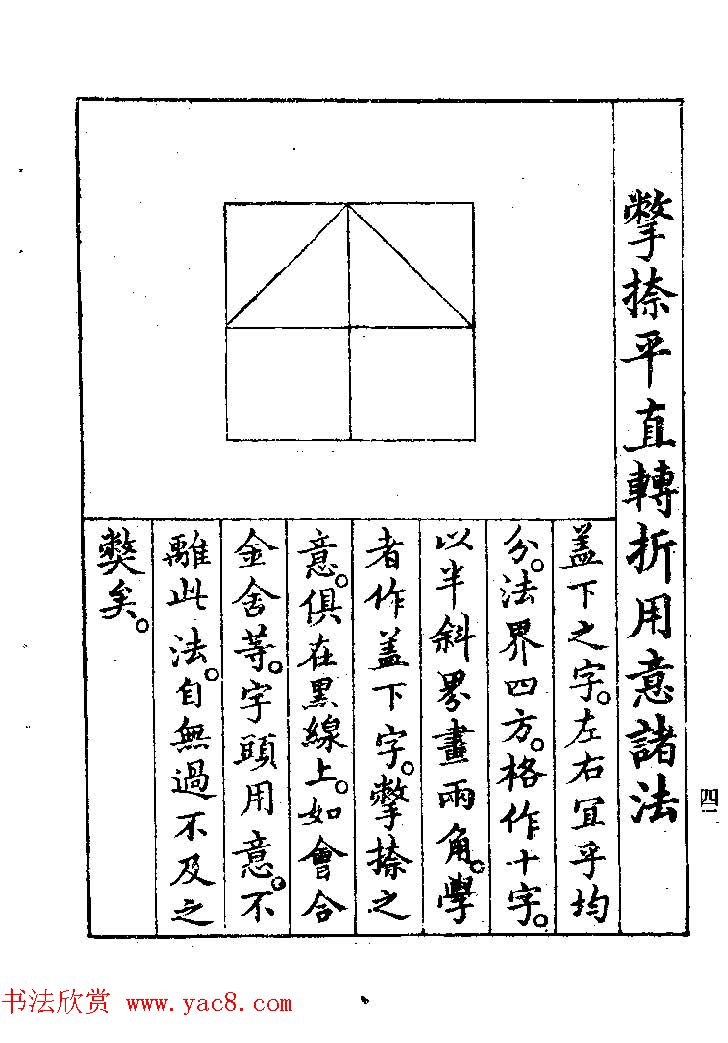 撆捺平直轉折用意諸法
蓋下之字。左右冝平均
分。法界四方。格作十字。
以半斜界畫兩角。學
者作蓋下字。撆捺之
意。俱在黑線上。如會合
金舍等。字頭用意。不
離此法。自無過不及之
獘矣。
四二
书法欣赏 www.yac8.com